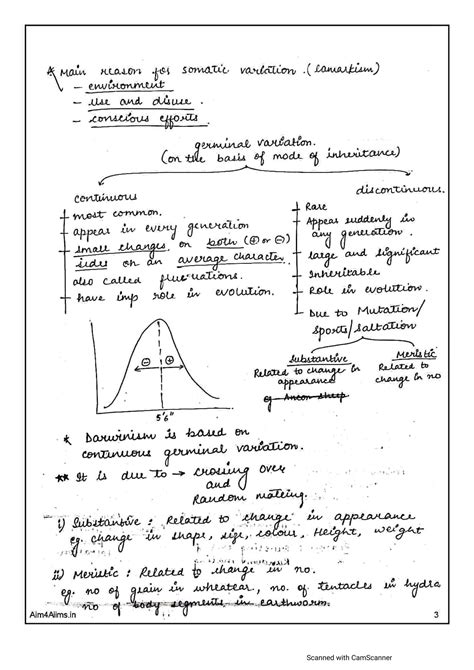 * Main reason for somatic variation. (Lamarkism)
- environment
- use and disuse.
- conscious efforts.
germinal variation.
(on the basis of mode of inheritance)
continuous
- most common.
- appear in every generation
- small changes on both (⊕ or ⊖)
sides on an average character
also called fluctuations.
- have imp role in evolution.
discontinuous.
- Rare
- Appear suddenly in
any generation.
- large and significant
- Inheritable
- Role in evolution.
- Due to Mutation/
Sports/Saltation
Substantive
Related to change in
appearance
eg Ancon sheep
Meristic
Related to
change in no
⊖ ⊕
5'6"
* Darwinism is based on
continuous germinal variation.
** It is due to → crossing over
and
Random mateing.
i) Substantive : Related to change in appearance
eg. change in shape, size, colour, Height, weight
ii) Meristic : Related to change in no.
eg. no of grain in wheatear, no. of tentacles in hydra
no of body segments in earthworm.
Aim4Aiims.in
3
Scanned with CamScanner